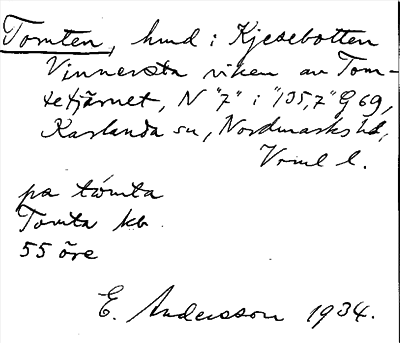 Tomten, hmd i Kjesebotten
Vinnersta viken av Tom-
tetjärnet, N "7" i "135,7" G 69,
Karlanda sn, Nordmarks hd,
Vrml l.
pa tómta
Tomta kb
55 öre
E. Andersson 1934.